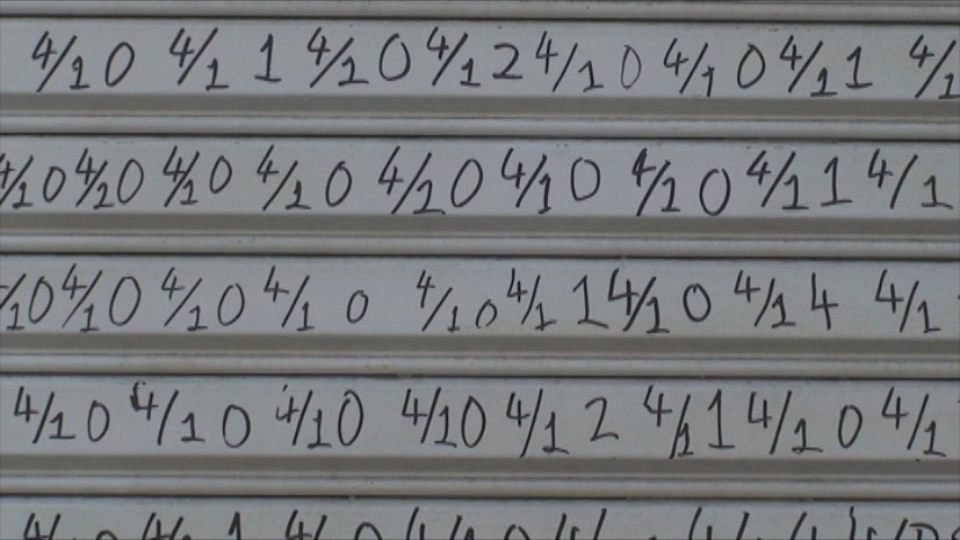 4/10 4/11 4/10 4/12 4/10 4/10 4/11 4/1
4/10 4/10 4/10 4/10 4/10 4/10 4/10 4/11 4/1
/10 4/10 4/10 4/10 4/10 4/11 4/10 4/14 4/1
4/10 4/10 4/10 4/10 4/12 4/11 4/10 4/1